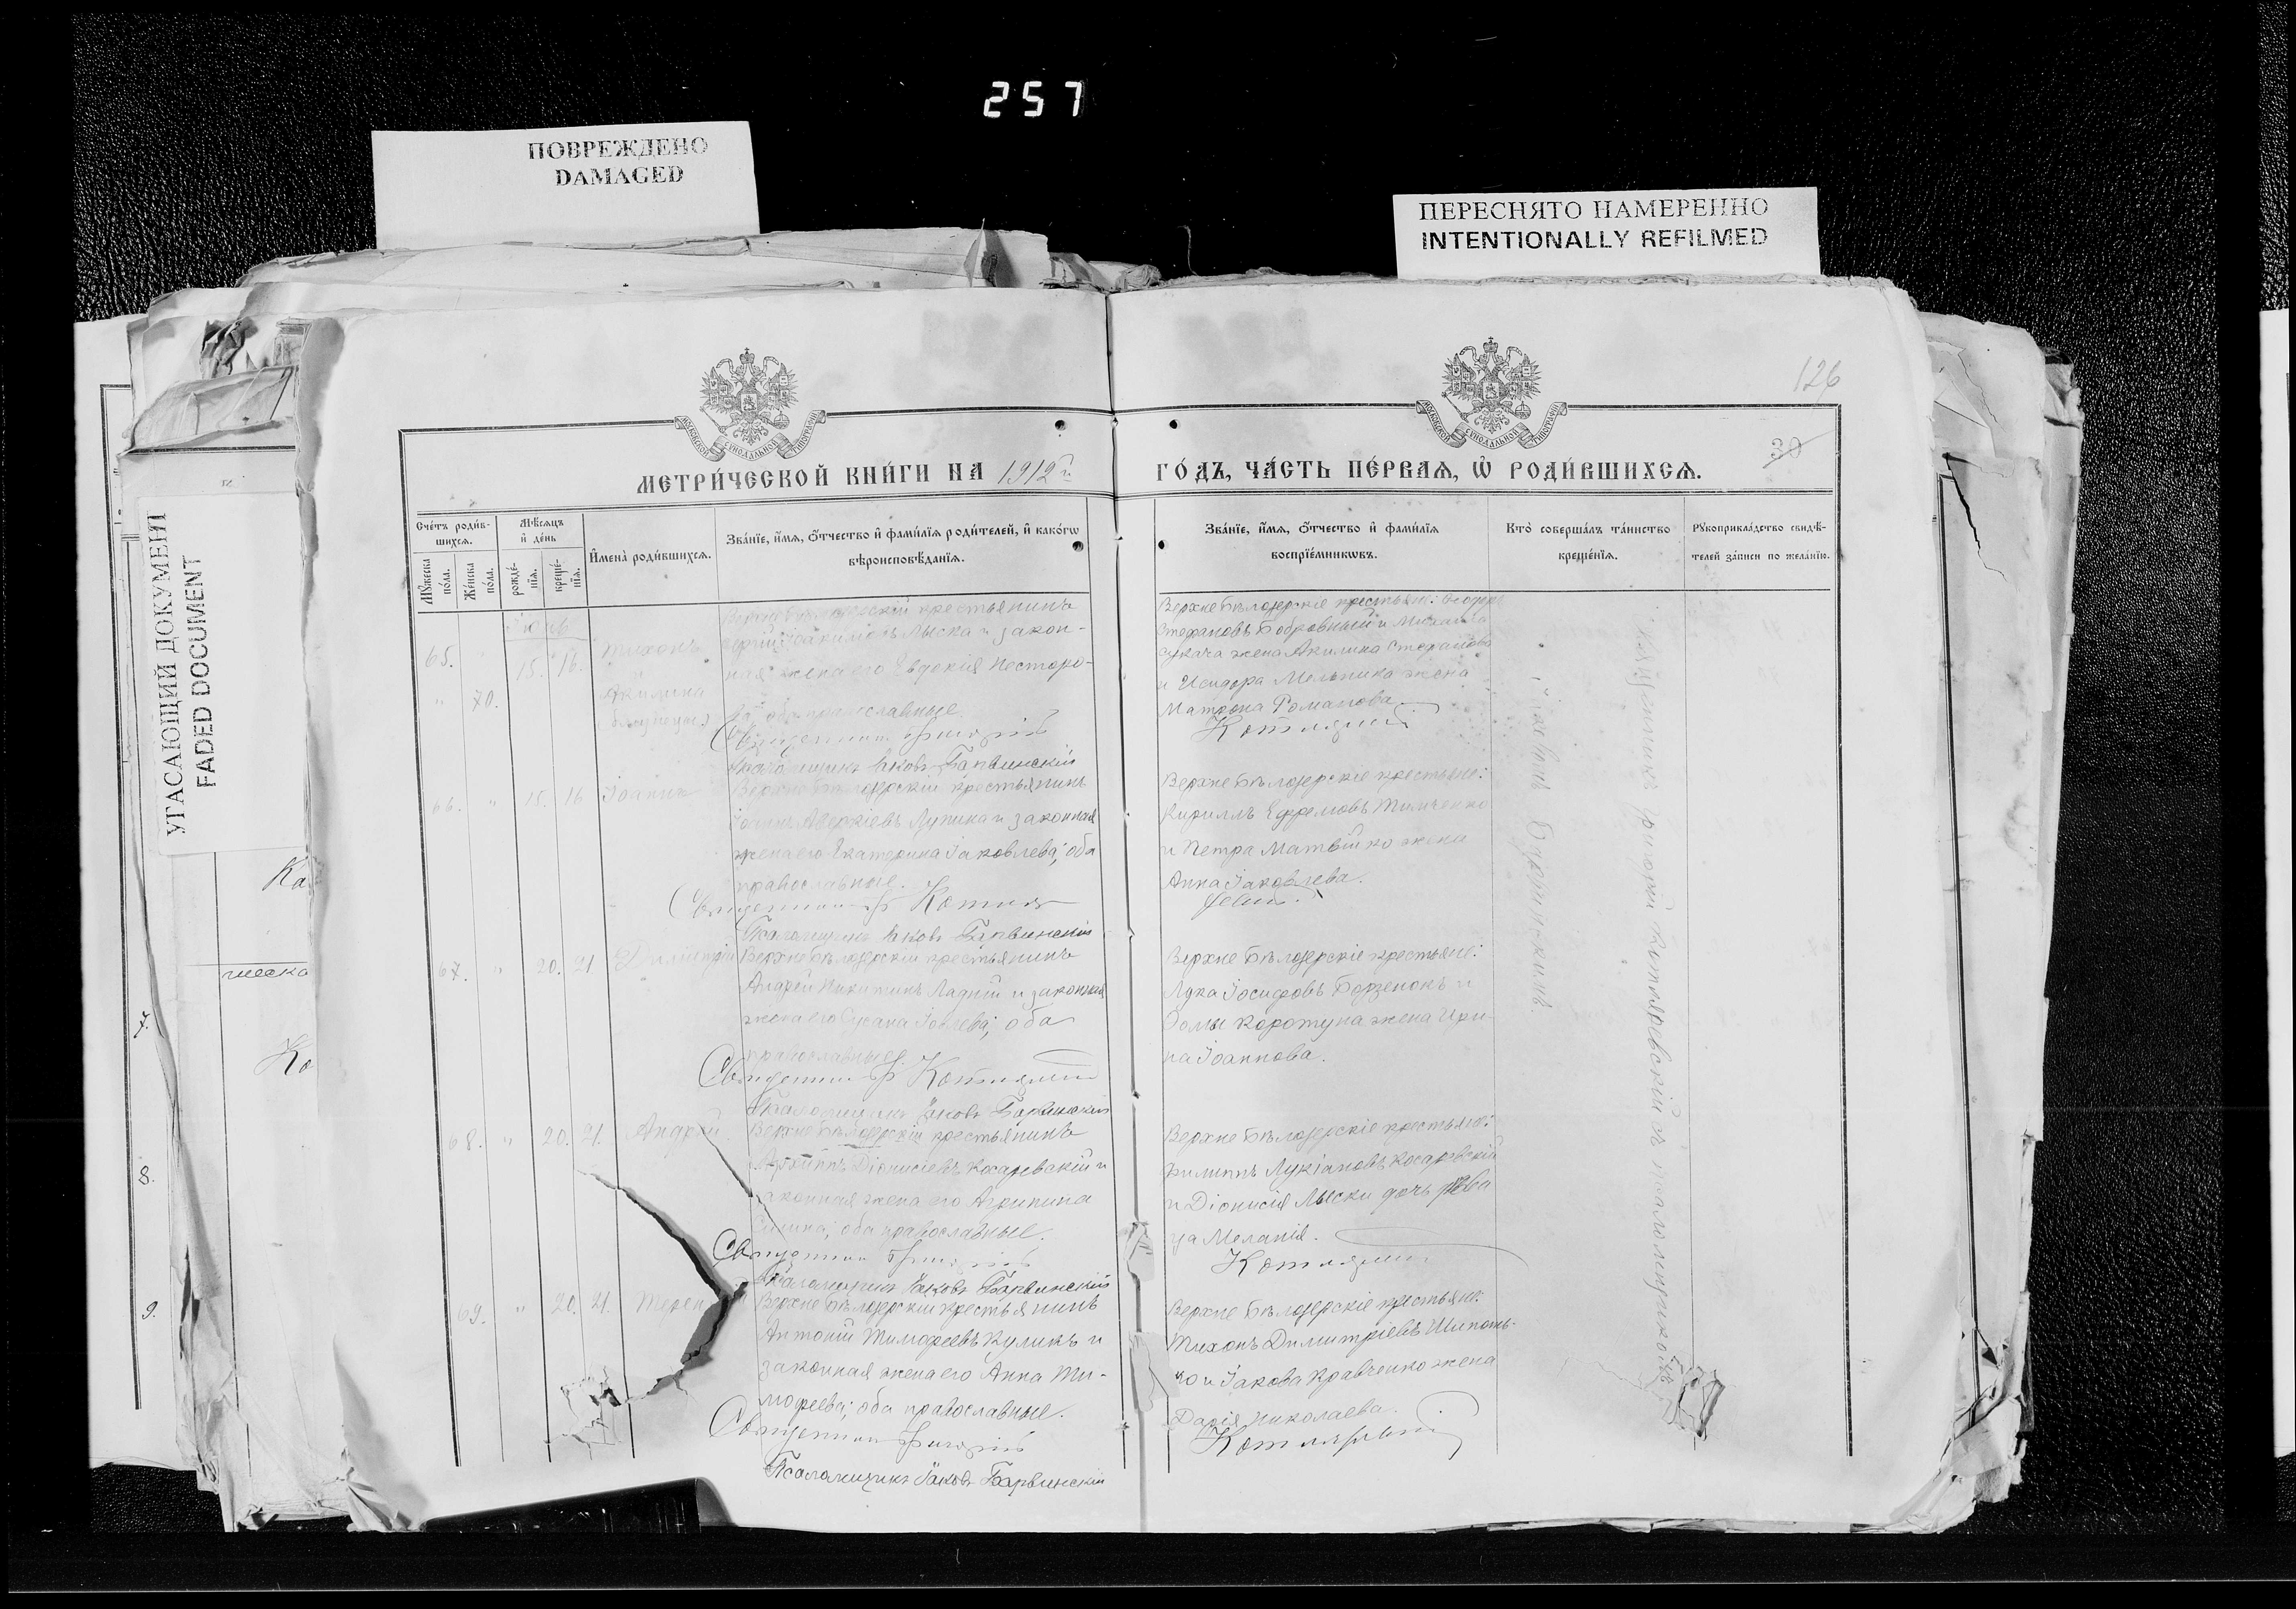 257
ПОВРЕЖДЕНО
DAMAGED
ПЕРЕСНЯТО НАМЕРЕННО
INTENTIONALLY REFILMED
УГАСАЮЩИЙ ДОКУМЕНТ
FADED DOCUMENT
126
30
МОСКОВСКОЙ СѴНОДАЛЬНОЙ ТИПОГРАФІИ
МОСКОВСКОЙ СѴНОДАЛЬНОЙ ТИПОГРАФІИ
МЕТРИ́ЧЕСКОЙ КНИ́ГИ НА 1912й
ГО́ДЪ, ЧА́СТЬ ПЕ́РВАѦ, Ѡ҆ РОДИ́ВШИХСѦ.
Сче́тъ роди́в-
шихсѧ.
Мꙋ́жеска по́ла.
Же́нска по́ла.
Мѣ́сѧцъ
и҆ де́нь
рожде́-
нїѧ.
креще́-
нїѧ.
И҆мена̀ роди́вшихсѧ.
Зва́нїе, и҆́мѧ, ѻ҆́тчество и҆ фами́лїѧ роди́телей, и҆ како́гѡ
вѣроисповѣ́данїѧ.
Зва́нїе, и҆́мѧ, ѻ҆́тчество и҆ фами́лїѧ
воспрїе́мникѡвъ.
Кто̀ соверша́лъ та́инство
креще́нїѧ.
Рꙋкоприкла́дство свидѣ́-
телей за́писи по жела́нїю.
65. " 15. 16. Тихонъ
" 70. Акилина
(близнецы)
крестьянинъ
Лыска и закон-
ная жена его Евдокія Нестеро-
ва, оба православные.
Священникъ Григорій
Псаломщикъ Іаковъ Барвинскій
Верхне Бѣлозерскіе крестьяне: Ѳеодоръ
Стефановъ Бобровный и Михаила
жена Акилина Стефанова
и Исидора Мельника жена
Матрона Романова.
Котляревскій
66. " 15. 16 Іоаннъ
Верхне Бѣлозерскій крестьянинъ
Іоаннъ Аверкіевъ Лупина и законная
жена его Екатерина Іаковлева; оба
православные.
Священникъ Гр Котляр
Псаломщикъ Іаковъ Барвинскій
Верхне Бѣлозерскіе крестьяне:
Кириллъ Ефремовъ Тимченко
и Петра Матвійко жена
Анна Іаковлева.
67. " 20. 21 Димитрій
Верхне Бѣлозерскій крестьянинъ
Андрей Никитинъ Ладный и законная
жена его Сусана Іовлева; оба
православные
Священникъ Гр Котляревскій
Псаломщикъ Іаковъ Барвинскій
Верхне Бѣлозерскіе крестьяне:
Лука Іосифовъ Борзенокъ и
Ѳомы Коротуна жена Ири-
на Іоаннова.
68. " 20. 21. Андрей
Верхне Бѣлозерскій крестьянинъ
Архиппъ Діонисіевъ Косаревскій и
законная жена его Агрипина
оба православные.
Священникъ Григорій
Псаломщикъ Іаковъ Барвинскій
Верхне Бѣлозерскіе крестьяне:
Филиппъ Лукіановъ Косаревскій
и Діонисія Лыски дочь дѣви
ца Меланія.
Котляревскій
69. " 20. 21. Терен
Верхне Бѣлозерскій крестьянинъ
Антоній Тимофеевъ Куликъ и
законная жена его Анна Ти-
мофеева; оба православные.
Священникъ Григорій
Псаломщикъ Іаковъ Барвинскій
Верхне Бѣлозерскіе крестьяне:
Тихонъ Димитріевъ Шипоть-
ко и Іакова Кравченко жена
Дарія Николаева.
Котляревскій
Священникъ Григорій Котляревскій съ псаломщикомъ
Іаковомъ Барвинскимъ.
Ка
ческо
Ко
7.
8.
9.